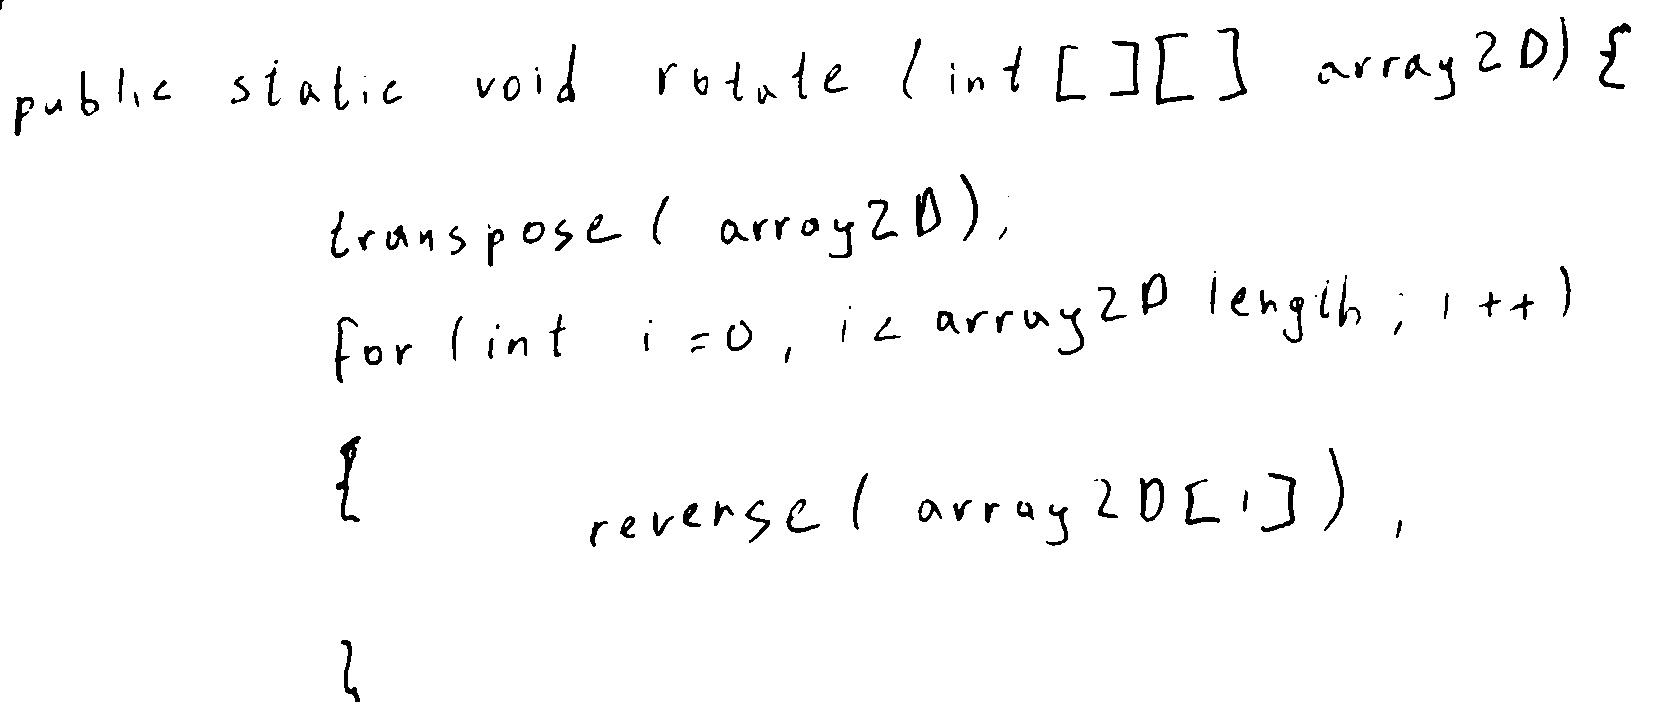 public static void rotate (int [][] array2D) {
transpose ( array2D);
for (int i=0, i< array2D length ; i ++)
{ reverse ( array2D[i]) ,
}